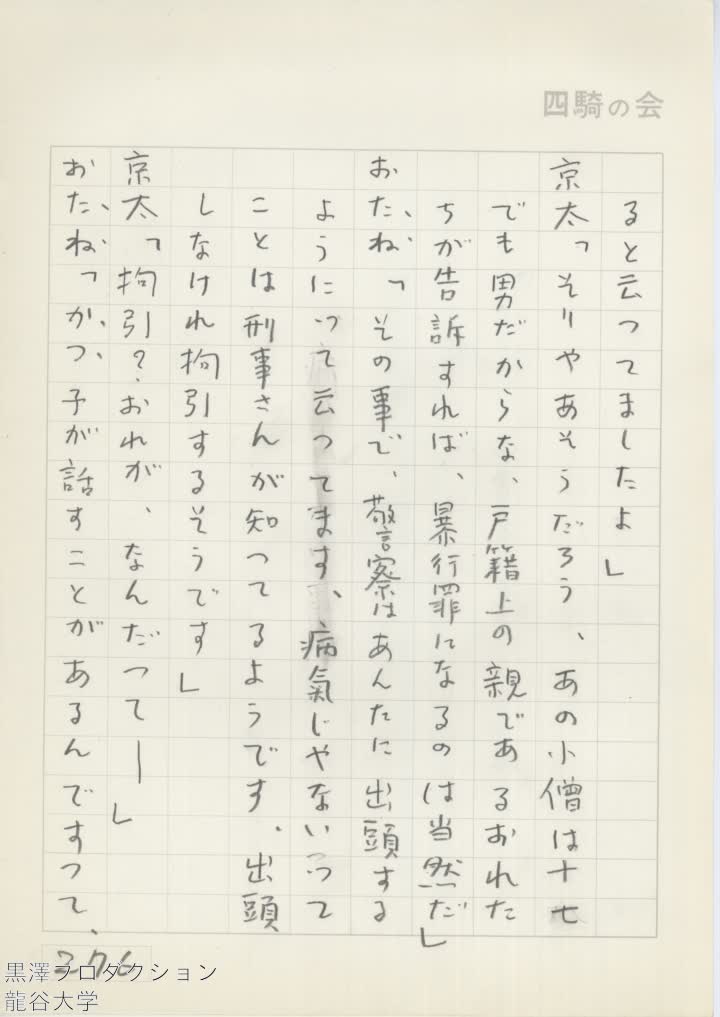 四騎の会
ると云つてましたよ」
京太「そりやあそうだろう、あの小僧は十七
でも男だからな、戸籍上の親であるおれた
ちが告訴すれば、暴行罪になるのは当然だ」
おたね「その事で、警察はあんたに出頭する
ようにつて云つてます、病氣じやないつて
ことは刑事さんが知つてるようです、出頭
しなけれ拘引するそうです」
京太「拘引?おれが、なんだつて―」
おたね「かつ子が話すことがあるんですつて、
276
黒澤プロダクション
龍谷大学